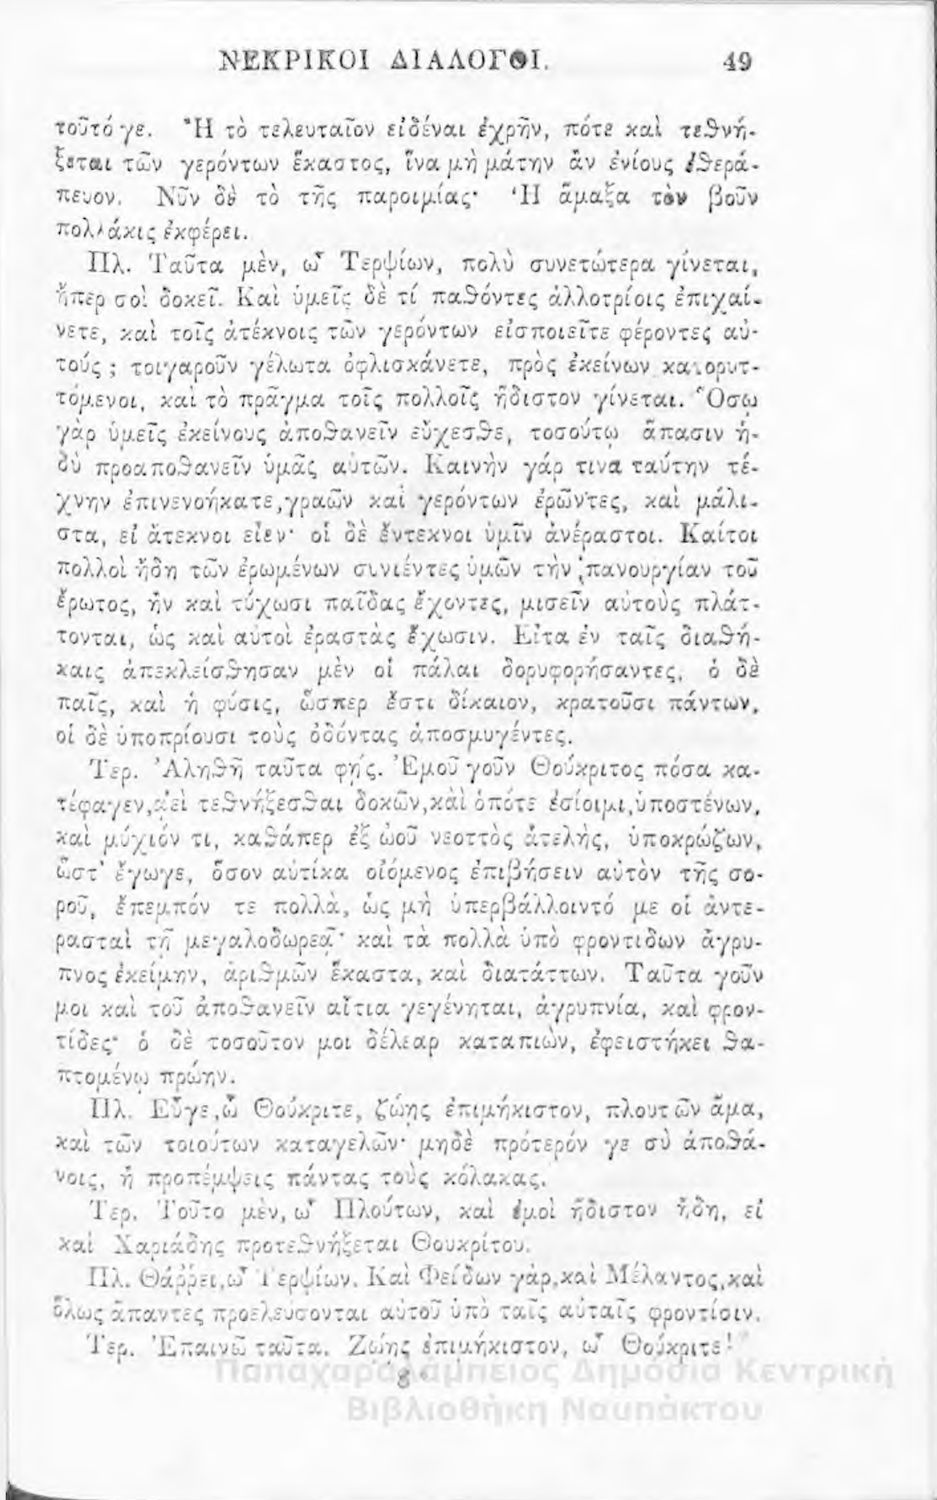 ΝΕΚΡΙΚΟΙ ΔΙΑΛΟΓΟΙ. 49
τοῦτό γε. Ἢ τὸ τελευταῖον εἰδέναι ἐχρῆν, πότε καὶ τεθνή-
ξεται τῶν γερόντων ἕκαστος, ἵνα μὴ μάτην ἂν ἐνίους ἐθερά-
πευον. Νῦν δὲ τὸ τῆς παροιμίας· Ἡ ἅμαξα τὸν βοῦν
πολλάκις ἐκφέρει.
Πλ. Ταῦτα μὲν, ὦ Τερψίων, πολὺ συνετώτερα γίνεται,
ἤπερ σοὶ δοκεῖ. Καὶ ὑμεῖς δὲ τί παθόντες ἀλλοτρίοις ἐπιχαί-
νετε, καὶ τοῖς ἀτέκνοις τῶν γερόντων εἰσποιεῖτε φέροντες αὑ-
τούς ; τοιγαροῦν γέλωτα ὀφλισκάνετε, πρὸς ἐκείνων κατορυτ-
τόμενοι, καὶ τὸ πρᾶγμα τοῖς πολλοῖς ἥδιστον γίνεται. Ὅσῳ
γὰρ ὑμεῖς ἐκείνους ἀποθανεῖν εὔχεσθε, τοσούτῳ ἅπασιν ἡ-
δὺ προαποθανεῖν ὑμᾶς αὐτῶν. Καινὴν γάρ τινα ταύτην τέ-
χνην ἐπινενοήκατε, γραῶν καὶ γερόντων ἐρῶντες, καὶ μάλι-
στα, εἰ ἄτεκνοι εἶεν· οἱ δὲ ἔντεκνοι ὑμῖν ἀνέραστοι. Καίτοι
πολλοὶ ἤδη τῶν ἐρωμένων συνιέντες ὑμῶν τὴν πανουργίαν τοῦ
ἔρωτος, ἢν καὶ τύχωσι παῖδας ἔχοντες, μισεῖν αὐτοὺς πλάτ-
τονται, ὡς καὶ αὐτοὶ ἐραστὰς ἔχωσιν. Εἶτα ἐν ταῖς διαθή-
καις ἀπεκλείσθησαν μὲν οἱ πάλαι δορυφορήσαντες, ὁ δὲ
παῖς, καὶ ἡ φύσις, ὥσπερ ἔστι δίκαιον, κρατοῦσι πάντων,
οἱ δὲ ὑποπρίουσι τοὺς ὀδόντας ἀποσμυγέντες.
Τερ. Ἀληθῆ ταῦτα φῄς. Ἐμοῦ γοῦν Θούκριτος πόσα κα-
τέφαγεν, ἀεὶ τεθνήξεσθαι δοκῶν, καὶ ὁπότε ἐσίοιμι, ὑποστένων,
καὶ μύχιόν τι, καθάπερ ἐξ ὠοῦ νεοττὸς ἀτελὴς, ὑποκρώζων,
ὥστ' ἔγωγε, ὅσον αὐτίκα οἰόμενος ἐπιβήσειν αὐτὸν τῆς σο-
ροῦ, ἔπεμπόν τε πολλὰ, ὡς μὴ ὑπερβάλλοιντό με οἱ ἀντε-
ρασταὶ τῇ μεγαλοδωρεᾷ· καὶ τὰ πολλὰ ὑπὸ φροντίδων ἄγρυ-
πνος ἐκείμην, ἀριθμῶν ἕκαστα, καὶ διατάττων. Ταῦτα γοῦν
μοι καὶ τοῦ ἀποθανεῖν αἴτια γεγένηται, ἀγρυπνία, καὶ φρον-
τίδες· ὁ δὲ τοσοῦτον μοι δέλεαρ καταπιὼν, ἐφειστήκει θα-
πτομένῳ πρώην.
Πλ. Εὖγε, ὦ Θούκριτε, ζώης ἐπιμήκιστον, πλουτῶν ἅμα,
καὶ τῶν τοιούτων καταγελῶν· μηδὲ πρότερόν γε σὺ ἀποθά-
νοις, ἢ προπέμψεις πάντας τοὺς κόλακας.
Τερ. Τοῦτο μὲν, ὦ Πλούτων, καὶ ἐμοὶ ἥδιστον ἤδη, εἰ
καὶ Χαριάδης προτεθνήξεται Θουκρίτου.
Πλ. Θάῤῥει, ὦ Τερψίων. Καὶ Φείδων γὰρ, καὶ Μέλαντος, καὶ
ὅλως ἅπαντες προελεύσονται αὐτοῦ ὑπὸ ταῖς αὐταῖς φροντίσιν.
Τερ. Ἐπαινῶ ταῦτα. Ζώης ἐπιμήκιστον, ὦ Θούκριτε!
8
Παπαχαραλάμπειος Δημόσια Κεντρική
Βιβλιοθήκη Ναυπάκτου